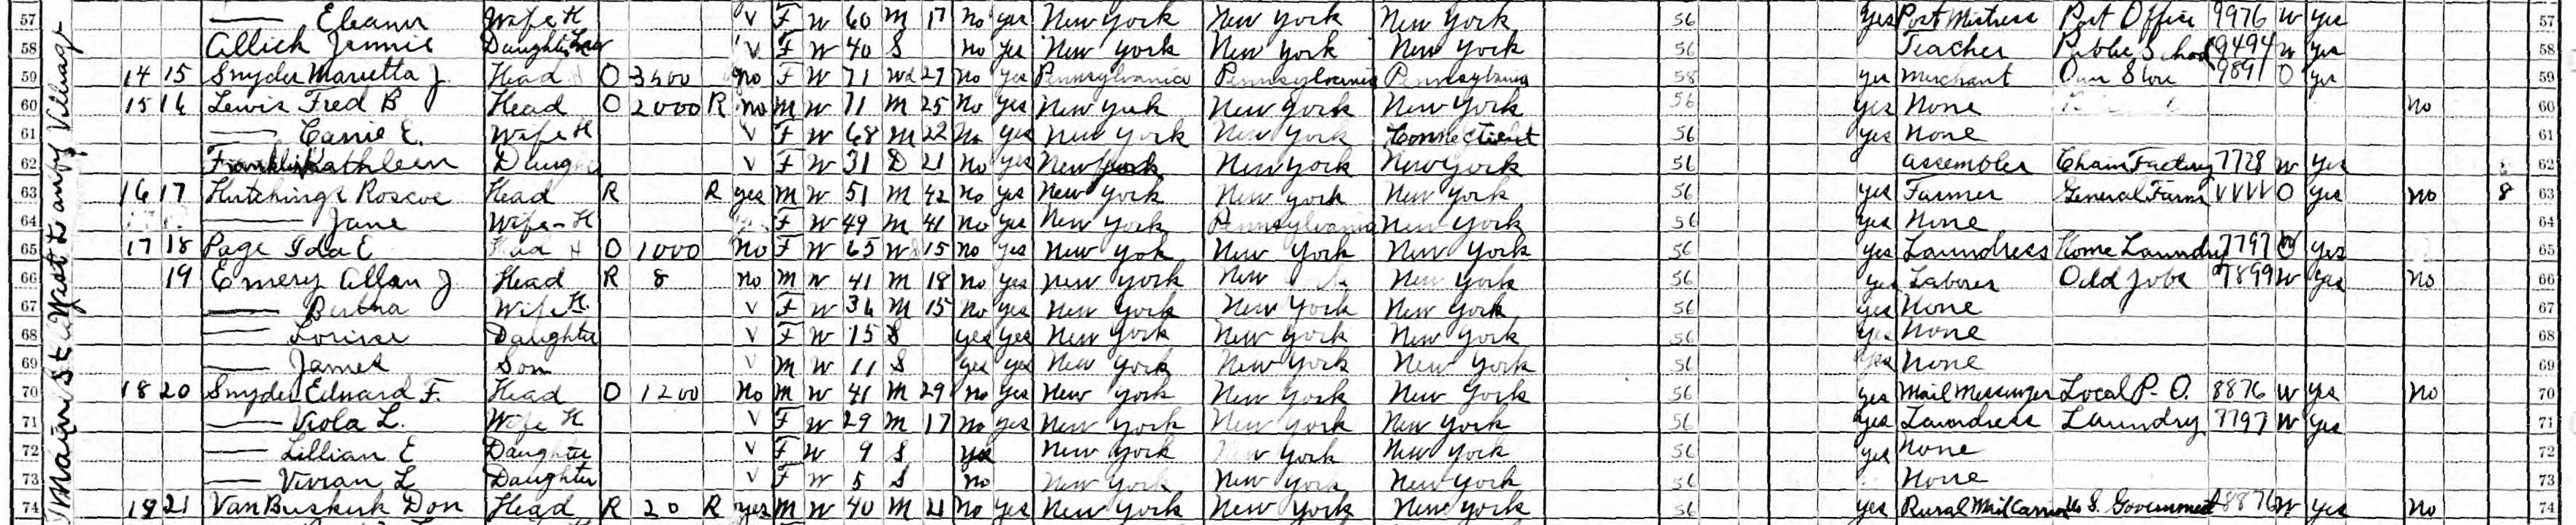 Main St West to any Village
57 — Eleanor Wife H V F W 60 M 17 No yes New York New York New York 56 yes Post Mistress Post Office 9976 W yes 57
58 Allich Jennie Daughter V F W 40 S no yes New York New York New York 56 Teacher Public School 9494 W yes 58
59 14 15 Snyder Marietta J. Head O 3500 no F W 71 Wd 27 No yes Pennsylvania Pennsylvania Pennsylvania 58 yes Merchant Own Store 9891 O yes 59
60 15 16 Lewis Fred B Head O 2000 R no M W 71 M 25 No yes New York New York New York 56 yes None No 60
61 — Carrie E. Wife H V F W 68 M 22 No yes New York New York Connecticut 56 yes None 61
62 Franklin Kathleen Daugh V F W 31 D 21 No yes New York New York New York 56 assembler Chain Factory 7728 W yes 62
63 16 17 Hutchings Roscoe Head R R yes M W 51 M 42 no yes New York New York New York 56 yes Farmer General Farm VVVV O yes no 8 63
64 — Jane Wife-H F W 49 M 41 no yes New York Pennsylvania New York 56 yes None 64
65 17 18 Page Ida E Head H O 1000 No F W 65 Wd 15 no yes New York New York New York 56 yes Laundress Home Laundry 7797 W yes 65
66 19 Emery Allan J Head R 8 no M W 41 M 18 no yes New York New New York 56 yes Laborer Odd Jobs 7899 W yes No 66
67 — Bertha Wife H. V F W 36 M 15 no yes New York New York New York 56 yes None 67
68 — Louise Daughter V F W 15 S yes yes New York New York New York 56 yes None 68
69 — James Son V M W 11 S yes yes New York New York New York 56 yes None 69
70 18 20 Snyder Edward F. Head O 1200 No M W 41 M 29 no yes New York New York New York 56 yes Mail Messenger Local P. O. 8876 W yes No 70
71 — Viola L. Wife H V F W 29 M 17 no yes New York New York New York 56 yes Laundress Laundry 7797 W yes 71
72 — Lillian E Daughter V F W 9 S yes New York New York New York 56 yes None 72
73 — Vivian L Daughter V F W 5 S no New York New York New York 56 None 73
74 19 21 VanBuskirk Don Head R 20 R yes M W 40 M 21 No yes New York New York New York 56 yes Rural Mail Carrier U. S. Government 8876 W yes No 74